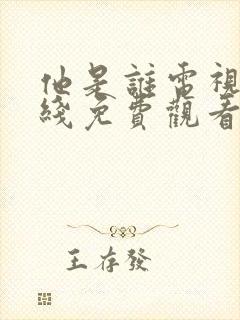 他是誰電視
綫免費觀看
王存發